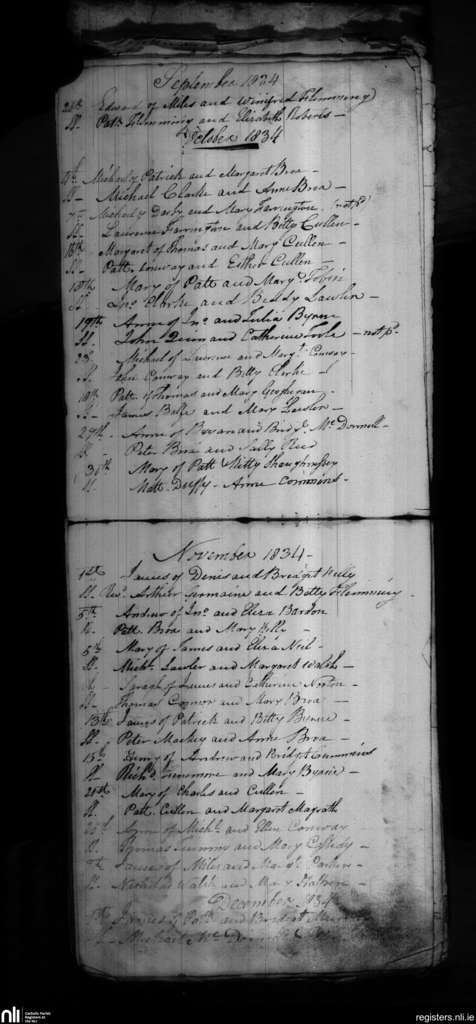 September 1834
28th Edward of Miles and Winifred Flemming
SS. Patk Flemming and Elizabeth Roberts -
October 1834
Michael of Patrick and Margaret Broe -
SS - Michael Clarke and Anne Broe -
7th Michael of Darby and Mary Farrington (not pd
SS. Laurence Farrington and Betty Cullen -
16th Margaret of Thomas and Mary Cullen -
SS. Patt Conway and Esther Cullen -
18th Mary of Patt and Mary Tobin
SS. Jno. Clarke and Biddy Lawlor -
19th Anne of Jno. and Julia Byrne
SS. John Quinn and Catherine Toole - not pd.
28 Michael of Laurence and Margt. Conway -
SS. John Conway and Betty Clarke -
Patt of Thomas and Mary Geoghegan -
SS - James and Mary Lawlor -
27th - Anne of and Bridgt. Mc. Donnell -
Peter Broe and Sally
30th Mary of Patt Kitty Shaughnessy
SS. Matt. Duffy - Anne Commins -
November 1834 -
1st James of Denis and Bridget Kelly
SS. Revd. Arthur Germaine and Betty Flemming
5th Andrew of Jno. and Eliza Bardon
SS. Patt Broe and Mary Kelly
5th Mary of James and Eliza Neil -
SS. Michl. Lawler and Margaret Walsh -
Sarah of James and Catherine Norton -
SS - Thomas Connor and Mary Broe -
13th James of Patrick and Betty Byrne -
SS. Peter Mackey and Anne Broe -
15th Henry of Andrew and Bridgt. Cummins
SS. Richd. and Mary Byrne -
Mary of Charles and Cullen -
SS. Patt Cullen and Margaret Magrath
Anne of Michl. and Ellen Conway
SS. Thomas and Mary Cassidy -
James of Miles and Margt. -
SS. Nicholas Walsh and Mary
December 1834
of Patk. and Bridget
Michael Mc. Donnell
nli
Catholic Parish
Registers at
the NLI
registers.nli.ie